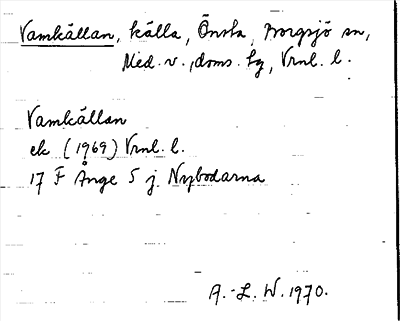 Vamkällan, källa, Önsta, Borgsjö sn,
Med. v., doms. hg, Vrnl. l.
Vamkällan
ek (1969) Vrnl. l.
17 F Ånge 5 j Nybodarna
A.-L. W. 1970.